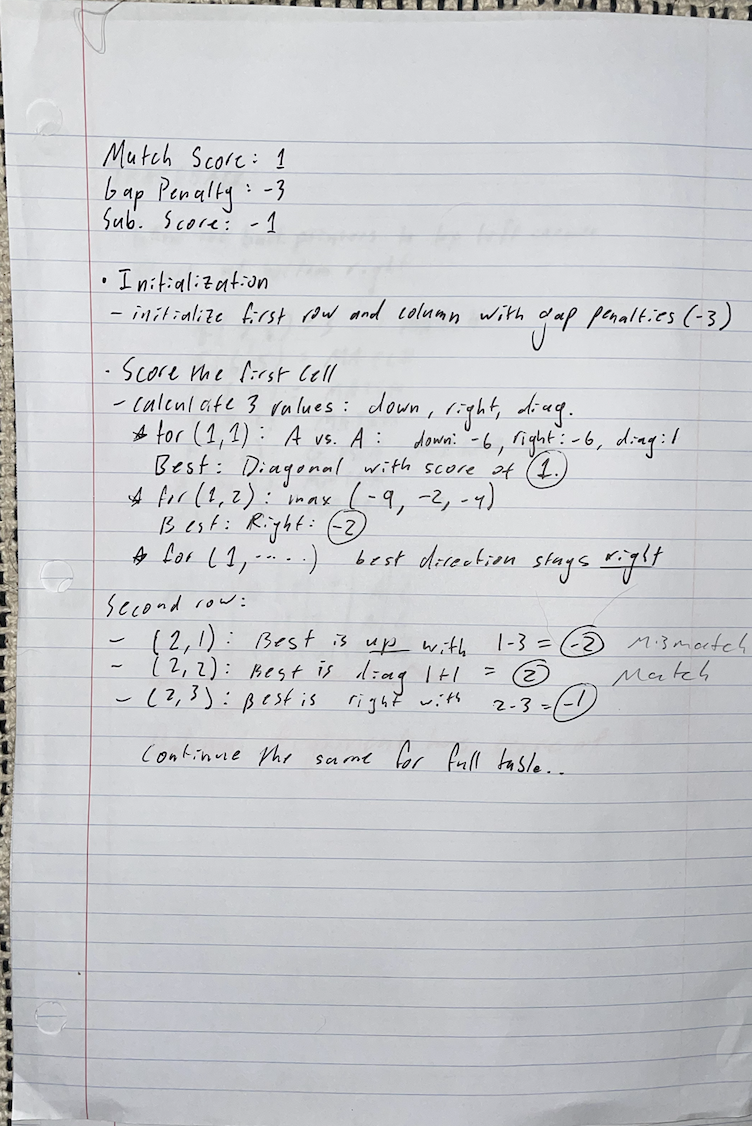 Match Score: 1
Gap Penalty: -3
Sub. Score: -1
• Initialization
- initialize first row and column with gap penalties (-3)
• Score the first cell
- calculate 3 values: down, right, diag.
* for (1,1): A vs. A: down: -6, right: -6, diag: 1
Best: Diagonal with score of 1.
* for (1,2): max (-9, -2, -4)
Best: Right: -2
* for (1,.....) best direction stays right
Second row:
- (2,1): Best is up with 1-3 = -2 Mismatch
- (2,2): Best is diag 1+1 = 2 Match
- (2,3): Best is right with 2-3 = -1
Continue the same for full table...